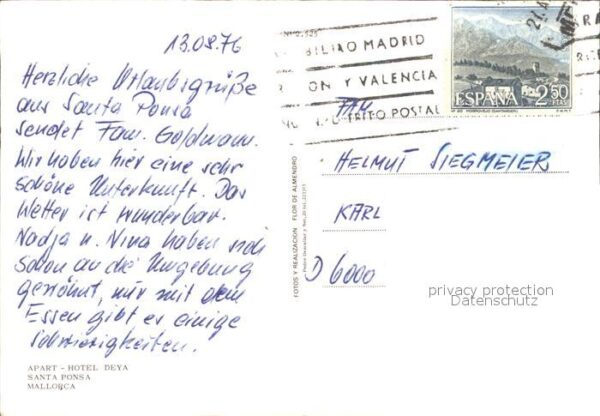 13.08.76
Herzliche Urlaubsgrüße
aus Santa Ponsa
sendet Fam. Goldmann.
Wir haben hier eine sehr
schöne Unterkunft. Das
Wetter ist wunderbar.
Nadja u. Nina haben sich
schon an die Umgebung
gewöhnt, nur mit dem
Essen gibt es einige
Schwierigkeiten.
APART - HOTEL DEYA
SANTA PONSA
MALLORCA
FOTOS Y REALIZACION FLOR DE ALMENDRO
BILBAO MADRID
Y VALENCIA
DISTRITO POSTAL
ESPAÑA 2'50
PTAS
F.N.M.T.
FAM.
HELMUT SIEGMEIER
KARL
D 6000
privacy protection
Datenschutz